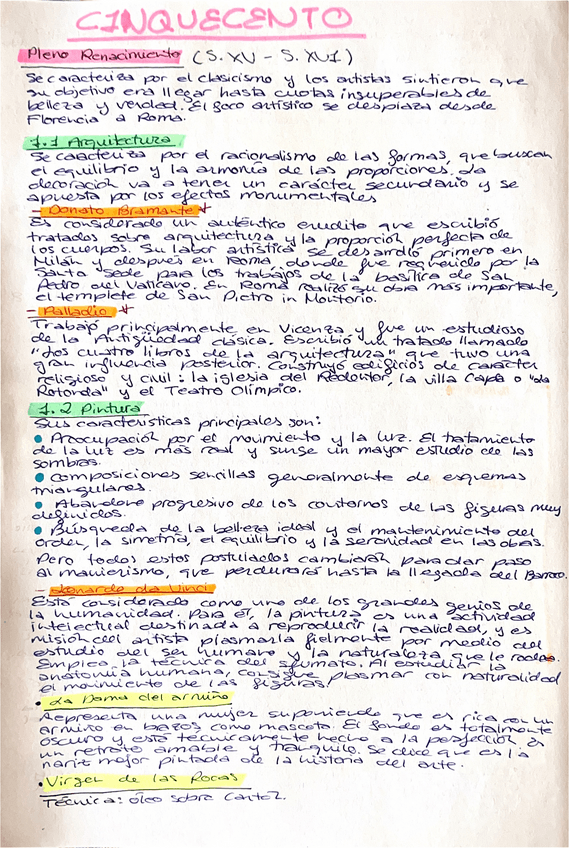 CINQUECENTO
Pleno Renacimiento (S. XV - S. XVI)
Se caracteriza por el clasicismo y los artistas sintieron que
su objetivo era llegar hasta cuotas insuperables de
belleza y verdad. El foco artístico se desplaza desde
Florencia a Roma.
1.1 Arquitectura
Se caracteriza por el racionalismo de las formas, que buscan
el equilibrio y la armonía de las proporciones. La
decoración va a tener un carácter secundario y se
apuesta por los efectos monumentales
- Donato Bramante
Es considerado un auténtico erudito que escribió
tratados sobre arquitectura y la proporción perfecta de
los cuerpos. Su labor artística se desarrolló primero en
Milán y después en Roma, donde fue requerido por la
Santa Sede para los trabajos de la basílica de San
Pedro del Vaticano. En Roma realizó su obra más importante,
el templete de San Pietro in Montorio.
- Palladio
Trabajó principalmente en Vicenza y fue un estudioso
de la Antigüedad clásica. Escribió un tratado llamado
"Los cuatro libros de la arquitectura" que tuvo una
gran influencia posterior. Construyó edificios de carácter
religioso y civil: la iglesia del Redentor, la villa Capa o "la
Rotonda" y el Teatro Olímpico.
1.2 Pintura
Sus características principales son:
• Preocupación por el movimiento y la luz. El tratamiento
de la luz es más real y surge un mayor estudio de las
sombras.
• Composiciones sencillas generalmente de esquemas
triangulares.
• Abandono progresivo de los contornos de las figuras muy
definidos.
• Búsqueda de la belleza ideal y el mantenimiento del
orden, la simetría, el equilibrio y la serenidad en las obras.
Pero todos estos postulados cambiarán para dar paso
al manierismo, que perdurará hasta la llegada del Barroco.
- Leonardo da Vinci
Está considerado como uno de los grandes genios de
la humanidad. Para él, la pintura es una actividad
intelectual destinada a reproducir la realidad, y es
misión del artista plasmarla fielmente por medio del
estudio del ser humano y la naturaleza que le rodea.
Emplea la técnica del sfumato. Al estudiar la
anatomía humana, consigue plasmar con naturalidad
el movimiento de las figuras.
• La Dama del armiño
Representa una mujer suponiendo que es rica con un
armiño en brazos como mascota. El fondo es totalmente
oscuro y está técnicamente hecho a la perfección es
un retrato amable y tranquilo. Se dice que es la
nariz mejor pintada de la historia del arte.
• Virgen de las Rocas
Técnica: óleo sobre